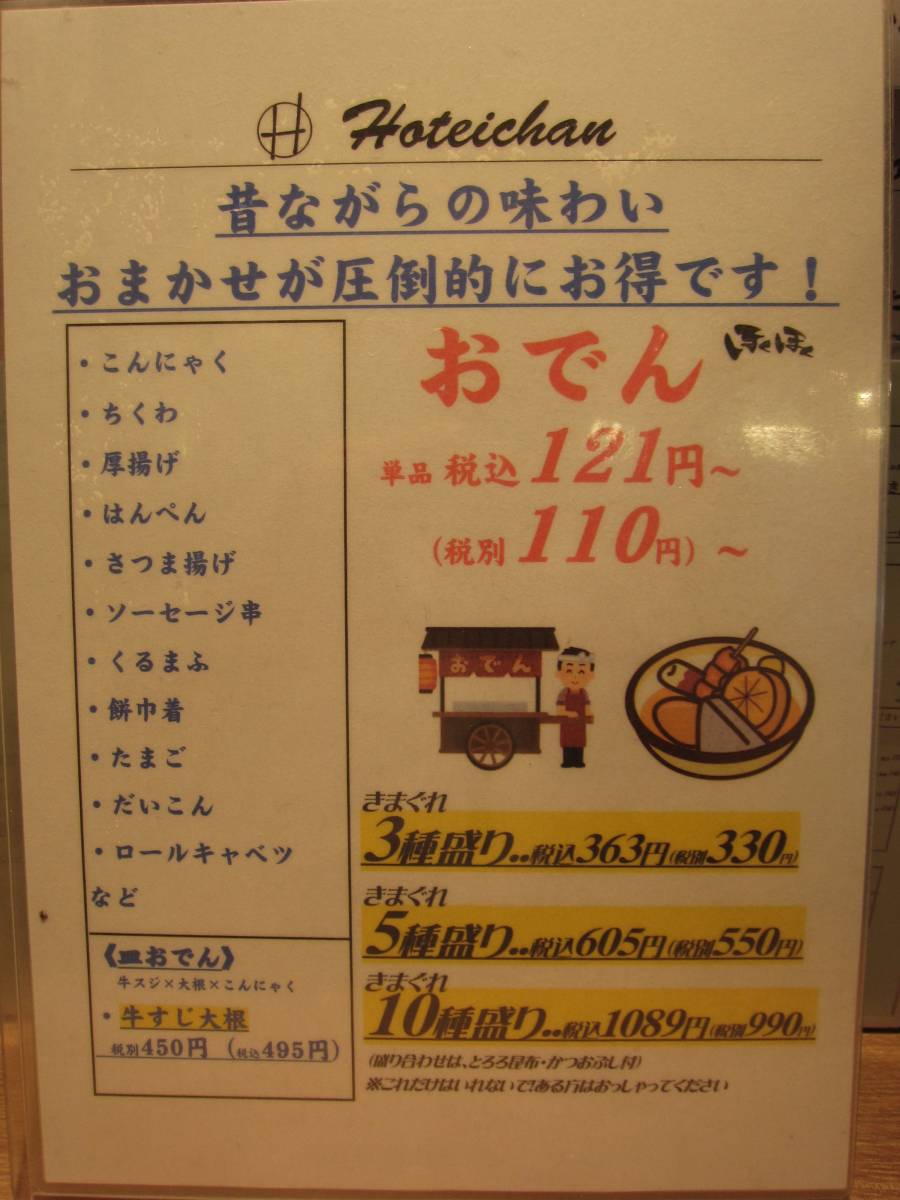 H Hoteichan
昔ながらの味わい
おまかせが圧倒的にお得です！
・こんにゃく
・ちくわ
・厚揚げ
・はんぺん
・さつま揚げ
・ソーセージ串
・くるまふ
・餅巾着
・たまご
・だいこん
・ロールキャベツ
など
《皿おでん》
牛スジ×大根×こんにゃく
・牛すじ大根
税別450円 (税込495円)
おでん
ほくほく
単品 税込 121円～
(税別 110円) ～
おでん
きまぐれ
3種盛り..税込363円(税別330円)
きまぐれ
5種盛り..税込605円(税別550円)
きまぐれ
10種盛り..税込1089円(税別990円)
(盛り合わせは、とろろ昆布・かつおぶし付)
※これだけはいれないで!ある方はおっしゃってください